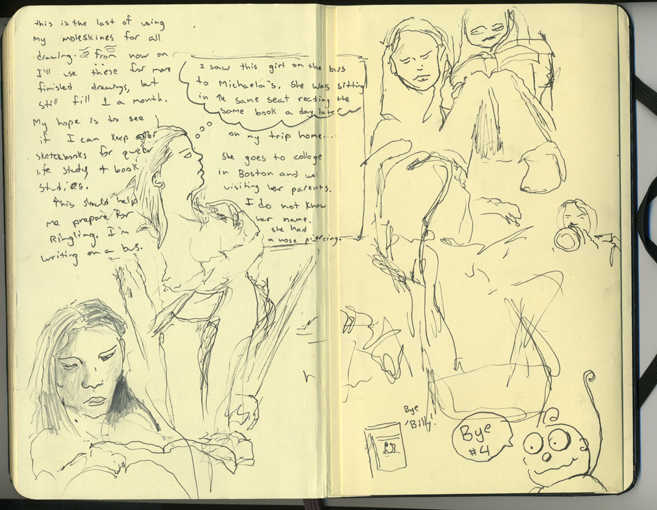 this is the last of using
my moleskines for all
drawing. From now on
I'll use these for more
finished drawings, but
still fill 1 a month.
My hope is to see
if I can keep other
sketchbooks for quicker
life study & book
studies.
This should help
me prepare for
Ringling. I'm
writing on a bus.
I saw this girl on the bus
to Michaela's. She was sitting
in the same seat reading the
same book a day later
on my trip home...
She goes to college
in Boston and was
visiting her parents.
I do not know
her name.
She had
a nose piercing.
Bye
'Billy'!
Bye
#4